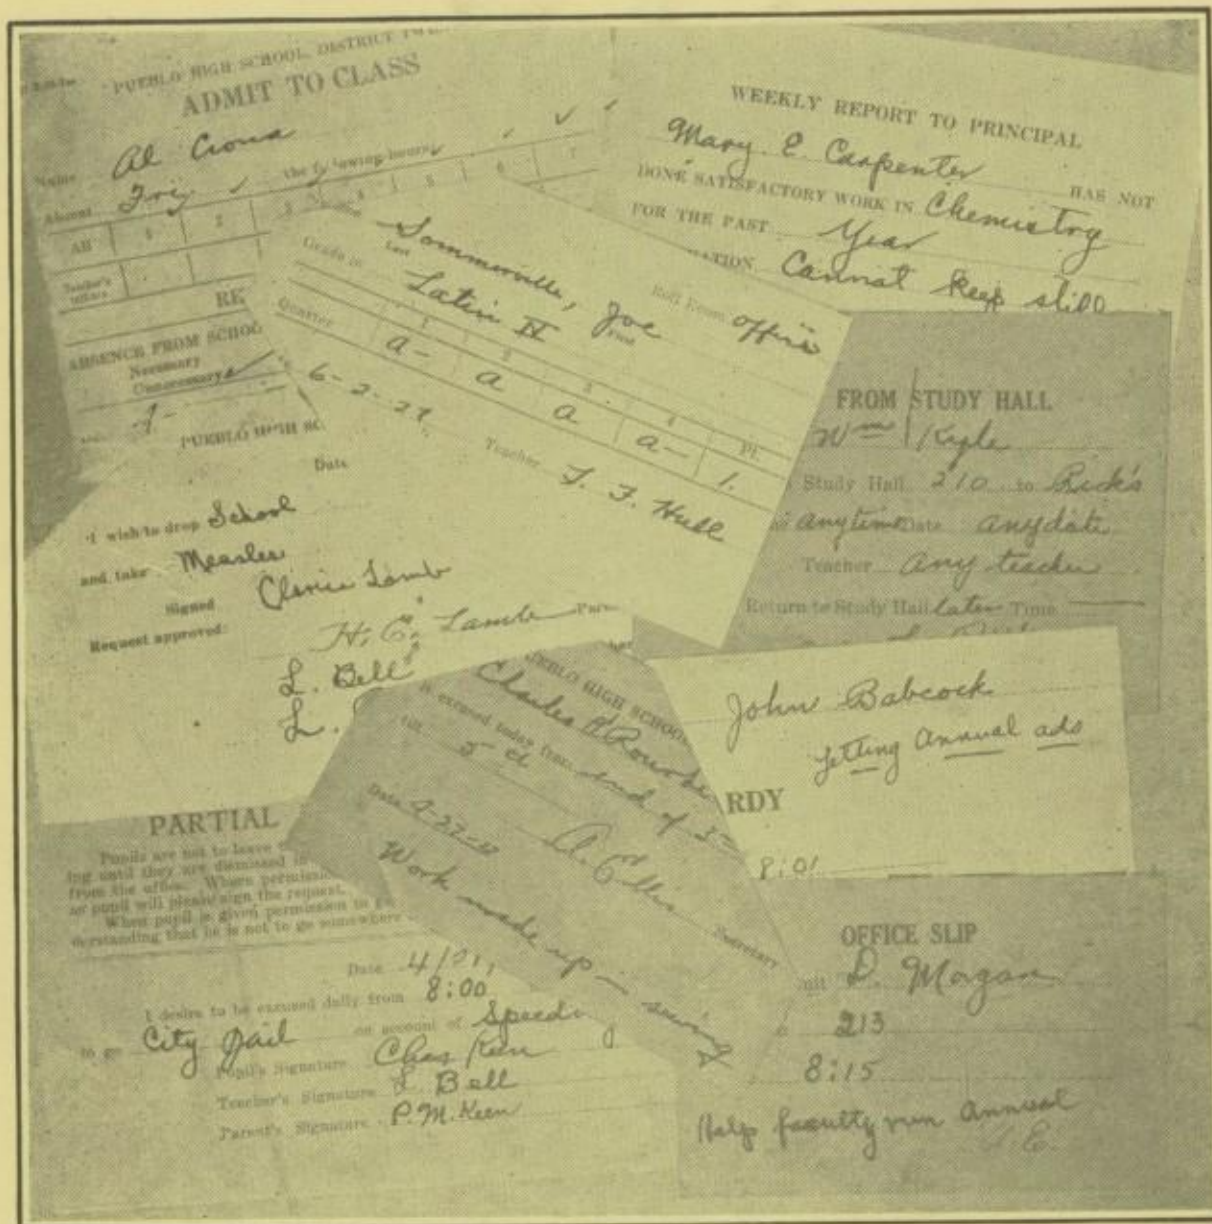 PUEBLO HIGH SCHOOL, DISTRICT
ADMIT TO CLASS
Name Al
Absent Fri the following hours
All 1 2 3 4 5 6 7
Teacher's
RE
ABSENCE FROM SCHOO
Necessary
Unnecessary
WEEKLY REPORT TO PRINCIPAL
Mary E. Carpenter HAS NOT
DONE SATISFACTORY WORK IN Chemistry
FOR THE PAST Year
ATION Cannot keep still
Sommerville, Joe Roll Room office
Last First
Grade in Latin II
Quarter 1 2 3 4 Pt.
a- a a a- 1.
6-2-27 Teacher F. F. Hull
PUEBLO HIGH SC
Date
I wish to drop School
and take Measles
Signed Clarice Lamb
Request approved:
H. E. Lamb
L. Bell
L.
FROM STUDY HALL
Wm Kyle
Study Hall 210 to Rick's
anytime Date anydate
Teacher any teacher
Return to Study Hall later Time
PUEBLO HIGH SCHOOL
Charles O'Rourke
is excused today from end of 3
till 5th
Date
Secretary
Work made up in sewing
John Babcock
Getting Annual ads
RDY
8:01
PARTIAL
Pupils are not to leave
ing until they are dismissed in
from the office. Where permiss
pupil will please sign the request.
When pupil is given permission to
derstanding that he is not to go somewhere
Date 4/21,
I desire to be excused daily from 8:00
to go City Jail on account of Speedi
Pupil's Signature Chas Keen
Teacher's Signature L. Bell
Parent's Signature P. M. Keen
OFFICE SLIP
mit D. Morgan
213
8:15
Help faculty run Annual
E.